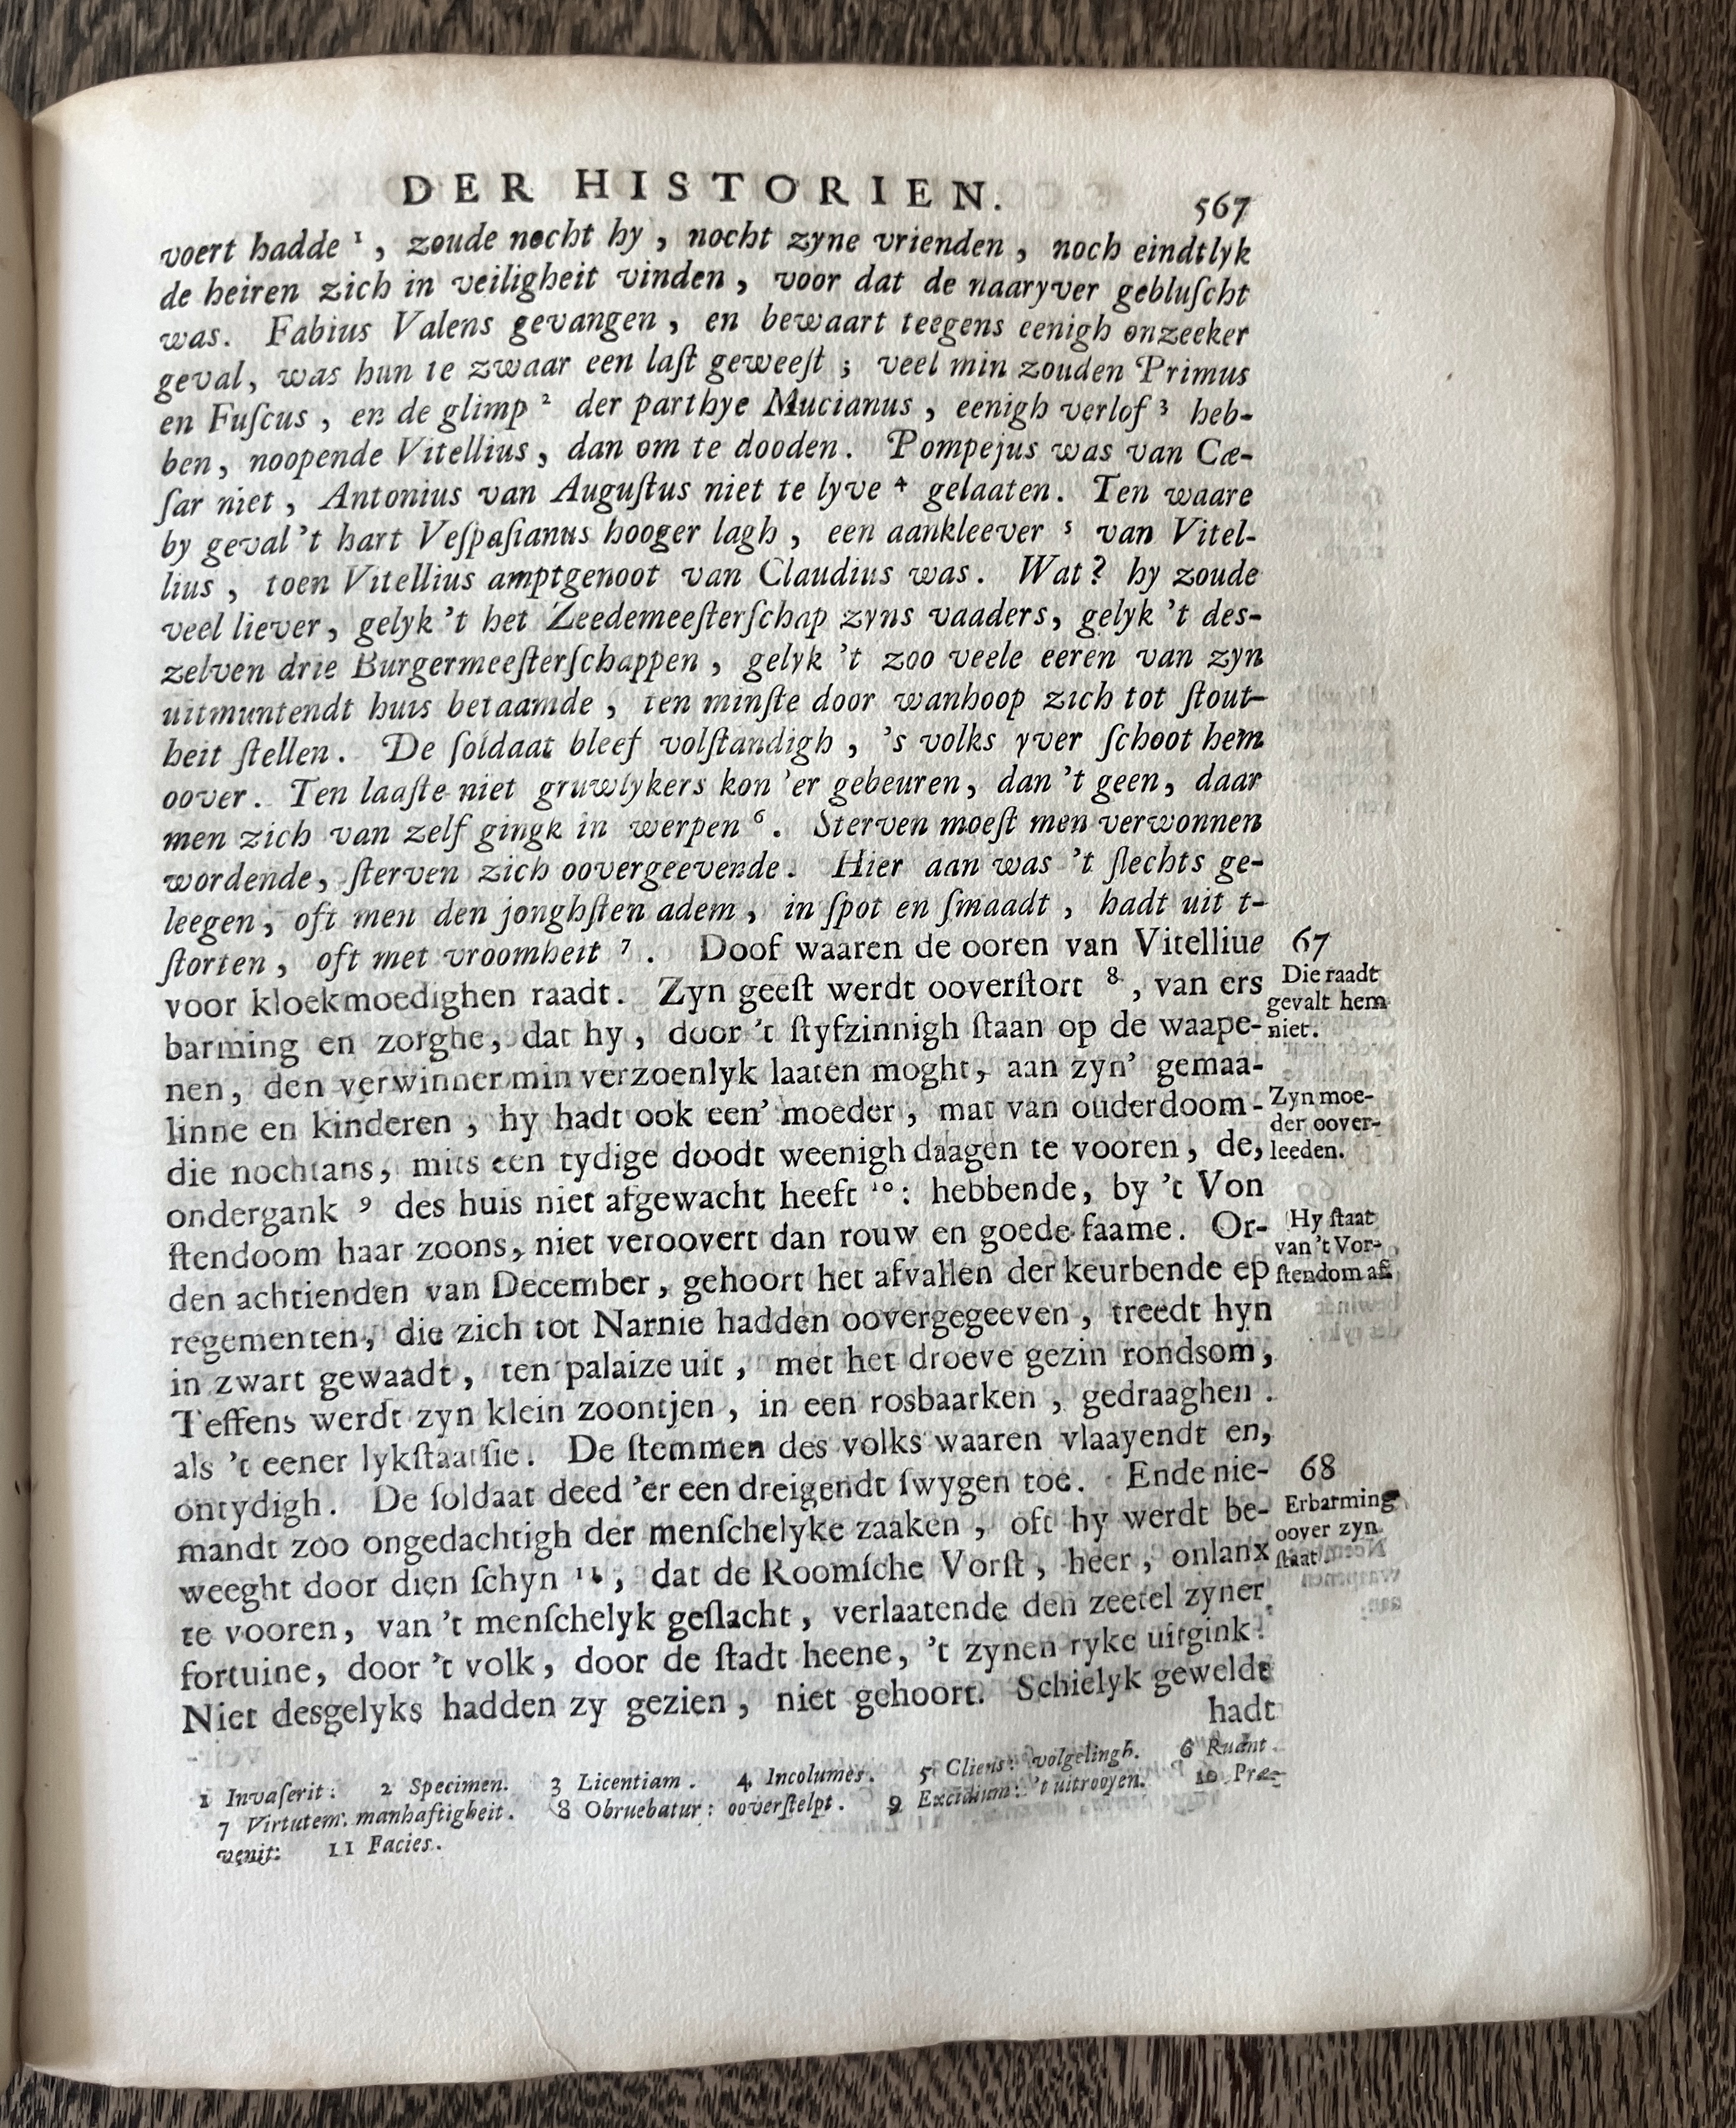 DER HISTORIEN.
567
voert hadde ¹, zoude nocht hy, nocht zyne vrienden, noch eindtlyk
de heiren zich in veiligheit vinden, voor dat de naaryver gebluſcht
was. Fabius Valens gevangen, en bewaart teegens eenigh onzeeker
geval, was hun te zwaar een laſt geweeſt; veel min zouden Primus
en Fuſcus, en de glimp ² der parthye Mucianus, eenigh verlof ³ heb-
ben, noopende Vitellius, dan om te dooden. Pompejus was van Cæ-
ſar niet, Antonius van Auguſtus niet te lyve ⁴ gelaaten. Ten waare
by geval 't hart Veſpaſianus hooger lagh, een aankleever ⁵ van Vitel-
lius, toen Vitellius amptgenoot van Claudius was. Wat? hy zoude
veel liever, gelyk 't het Zeedemeeſterſchap zyns vaaders, gelyk 't des-
zelven drie Burgermeeſterſchappen, gelyk 't zoo veele eeren van zyn
uitmuntendt huis betaamde, ten minſte door wanhoop zich tot ſtout-
heit ſtellen. De ſoldaat bleef volſtandigh, 's volks yver ſchoot hem
oover. Ten laaſte niet gruwlykers kon 'er gebeuren, dan 't geen, daar
men zich van zelf gingk in werpen ⁶. Sterven moeſt men verwonnen
wordende, ſterven zich oovergeevende. Hier aan was 't ſlechts ge-
leegen, oft men den jonghſten adem, in ſpot en ſmaadt, hadt uit t-
ſtorten, oft met vroomheit ⁷. Doof waaren de ooren van Vitelliue
voor kloekmoedighen raadt. Zyn geeſt werdt ooverſtort ⁸, van ers
barming en zorghe, dat hy, door 't ſtyfzinnigh ſtaan op de waape-
nen, den verwinner min verzoenlyk laaten moght, aan zyn' gemaa-
linne en kinderen, hy hadt ook een' moeder, mat van ouderdoom-
die nochtans, mits een tydige doodt weenigh daagen te vooren, de,
ondergank ⁹ des huis niet afgewacht heeft ¹⁰: hebbende, by 't Von
ſtendoom haar zoons, niet veroovert dan rouw en goede faame. Or-
den achtienden van December, gehoort het afvallen der keurbende ep
regementen, die zich tot Narnie hadden oovergegeeven, treedt hyn
in zwart gewaadt, ten palaize uit, met het droeve gezin rondsom,
Teffens werdt zyn klein zoontjen, in een rosbaarken, gedraaghen.
als 't eener lykſtaatſie. De ſtemmen des volks waaren vlaayendt en,
ontydigh. De ſoldaat deed 'er een dreigendt ſwygen toe. Ende nie-
mandt zoo ongedachtigh der menſchelyke zaaken, oft hy werdt be-
weeght door dien ſchyn ¹¹, dat de Roomſche Vorſt, heer, onlanx
te vooren, van 't menſchelyk geſlacht, verlaatende den zeetel zyner
fortuine, door 't volk, door de ſtadt heene, 't zynen ryke uitgink.
Niet desgelyks hadden zy gezien, niet gehoort. Schielyk gewelde
hadt
67
Die raadt
gevalt hem
niet.
Zyn moe-
der oover-
leeden.
Hy ſtaat
van 't Vor-
ſtendom af.
68
Erbarming
oover zyn
ſtaat.
1 Invaſerit: 2 Specimen. 3 Licentiam. 4 Incolumes. 5 Cliens: volgelingh. 6 Ruant.
7 Virtutem: manhaftigheit. 8 Obruebatur: ooverſtelpt. 9 Excidium: 't uitrooyen. 10 Præ-
venit: 11 Facies.